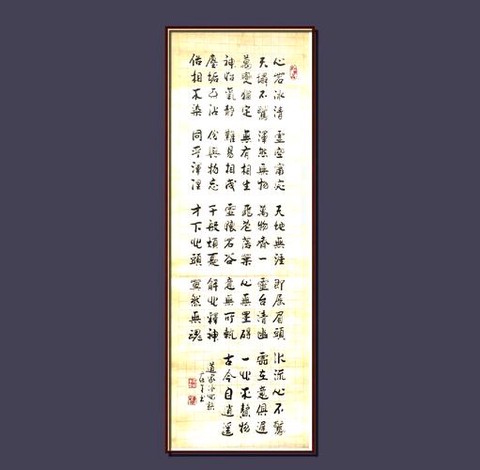 心若冰清 虛空甯宓 天地無涯 即展眉頭 水流心不驚
天塌不驚 渾然無物 萬物齊一 靈台清幽 雲在意俱遲
萬變猶定 無有相生 飛花落葉 心無罣碍 一心不贅物
神怡氣靜 難易相成 虛懷若谷 意無可執 古今自逍遥
塵垢不沾 份與物忘 千般煩憂 解心釋神
俗相不染 同乎渾涅 才下心頭 莫然無魂
道家冰心訣